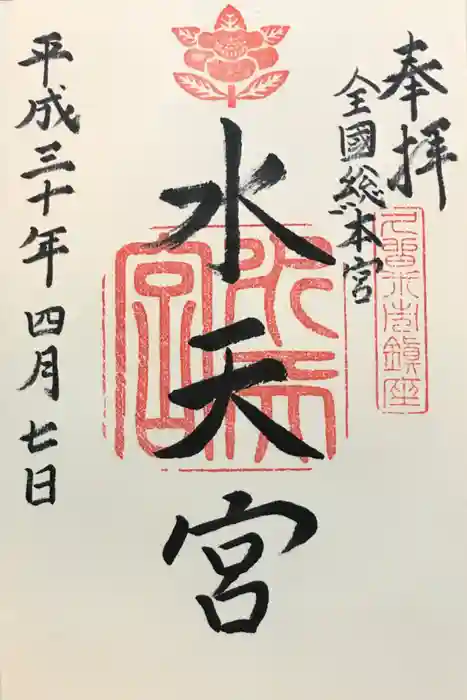 奉拝
全國総本宮
久留米市鎮座
水天宮
平成三十年四月七日